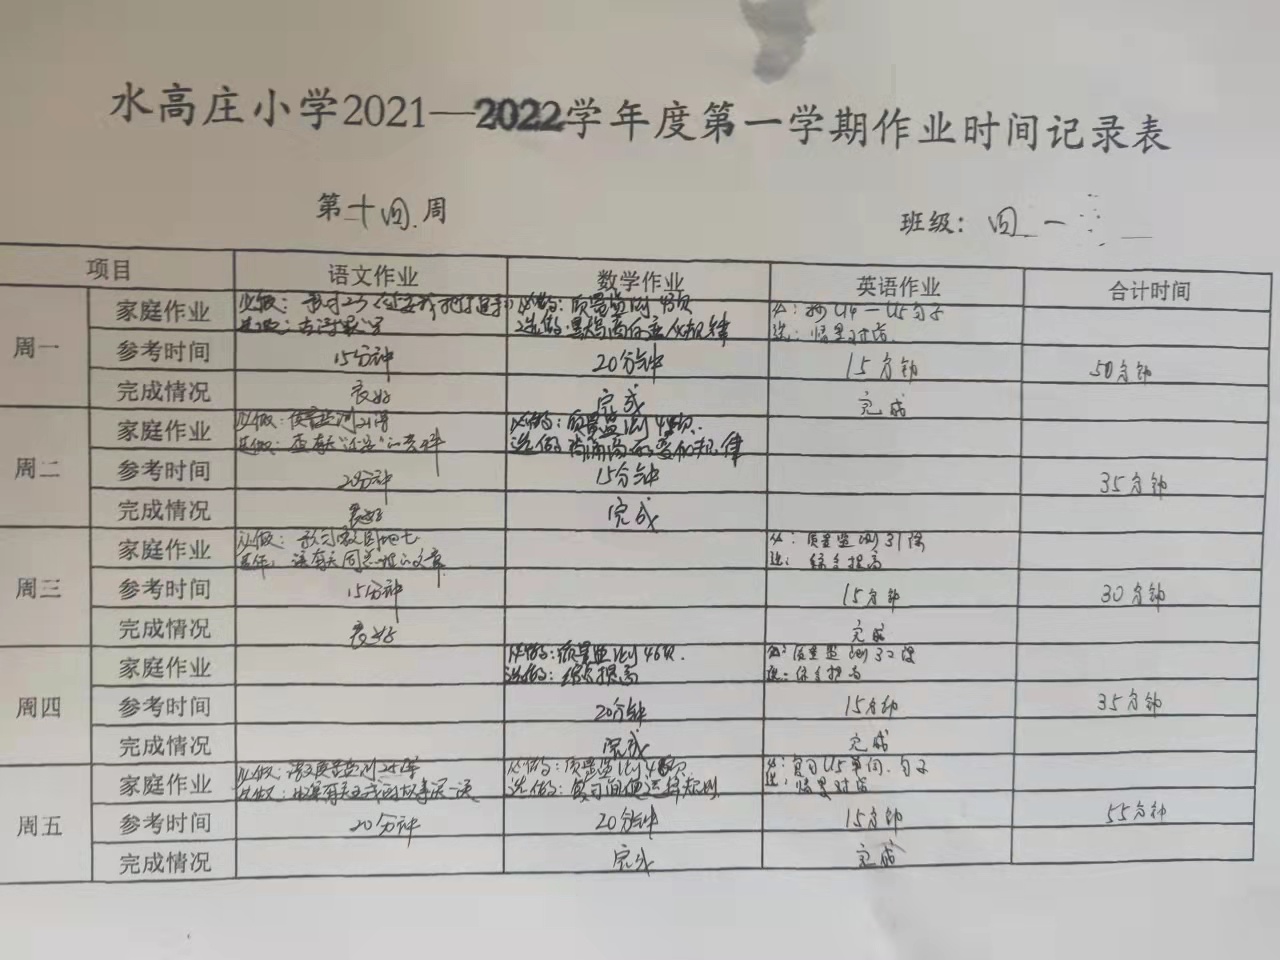 水高庄小学2021—2022学年度第一学期作业时间记录表
第十四周 班级：四 一
项目 语文作业 数学作业 英语作业 合计时间
周一
家庭作业 必做： 必做：质量监测43页 必：抄U4—U5句子
选做：商的变化规律 选：情景对话
参考时间 15分钟 20分钟 15分钟 50分钟
完成情况 良好 完成 完成
周二
家庭作业 必做：质量监测21课 必做：质量监测
选做： 选做：商的变化规律
参考时间 20分钟 15分钟 35分钟
完成情况 良好 完成
周三
家庭作业 必做： 必：质量监测31课
读有关 的文章 选：综合提高
参考时间 15分钟 15分钟 30分钟
完成情况 良好 完成
周四
家庭作业 必做：质量监测46页. 必：质量监测32课
选做：综合提高 选：综合提高
参考时间 20分钟 15分钟 35分钟
完成情况 完成 完成
周五
家庭作业 必做：语文质量监测 必做：质量监测 必：复习U5单词.句子
选做：复习 选：情景对话
参考时间 20分钟 20分钟 15分钟 55分钟
完成情况 完成 完成